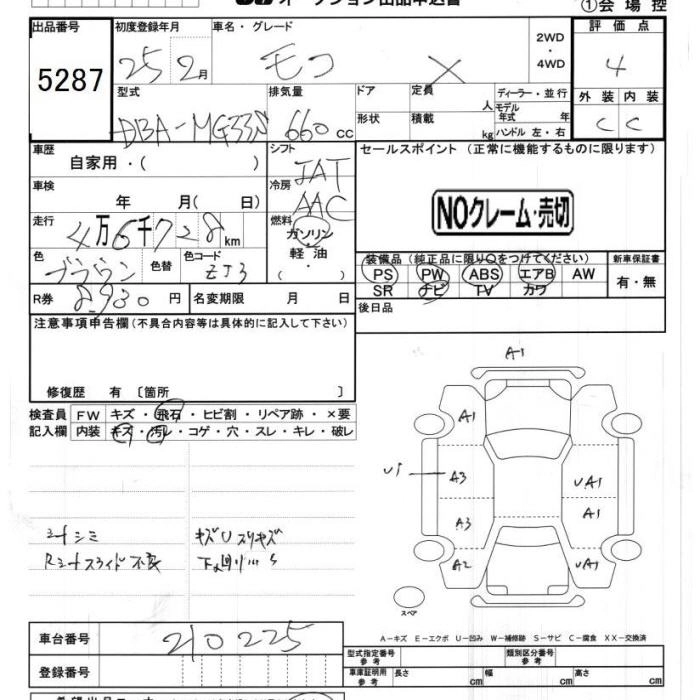 オークション出品申込書
①会場控
出品番号
5287
初度登録年月
25 2月
車名・グレード
モコ X
2WD
・
4WD
評価点
4
型式
DBA-MG33S
排気量
660 cc
ドア
形状
定員 人
積載 kg
ディーラー・並行
モデル年式 年
ハンドル 左・右
外装 内装
C C
車歴
自家用・( )
シフト
IAT
冷房
AAC
車検
年 月( 日)
走行
4万6千728km
燃料
ガソリン
・
軽油
・
色
ブラウン
色替
色コード
ZJ3
R券 8,930円
名変期限 月 日
セールスポイント(正常に機能するものに限ります)
NOクレーム・売切
装備品(純正品に限り○をつけてください)
PS PW ABS エアB AW
SR ナビ TV カワ
新車保証書
有・無
後日品
注意事項申告欄(不具合内容等は具体的に記入して下さい)
修復歴 有〔箇所 〕
検査員 FW キズ・飛石・ヒビ割・リペア跡・×要
記入欄 内装 キズ・汚レ・コゲ・穴・スレ・キレ・破レ
シートシミ
Rシートスライド不良
キズUスリキズ
A1
A1
U1
A3
UA1
A3
A1
A2
UA1
スペア
A-キズ E-エクボ U-凹み W-補修跡 S-サビ C-腐食 XX-交換済
車台番号
210225
登録番号
型式指定番号
参考
類別区分番号
参考
車庫証明用
参考
長さ cm 幅 cm 高さ cm